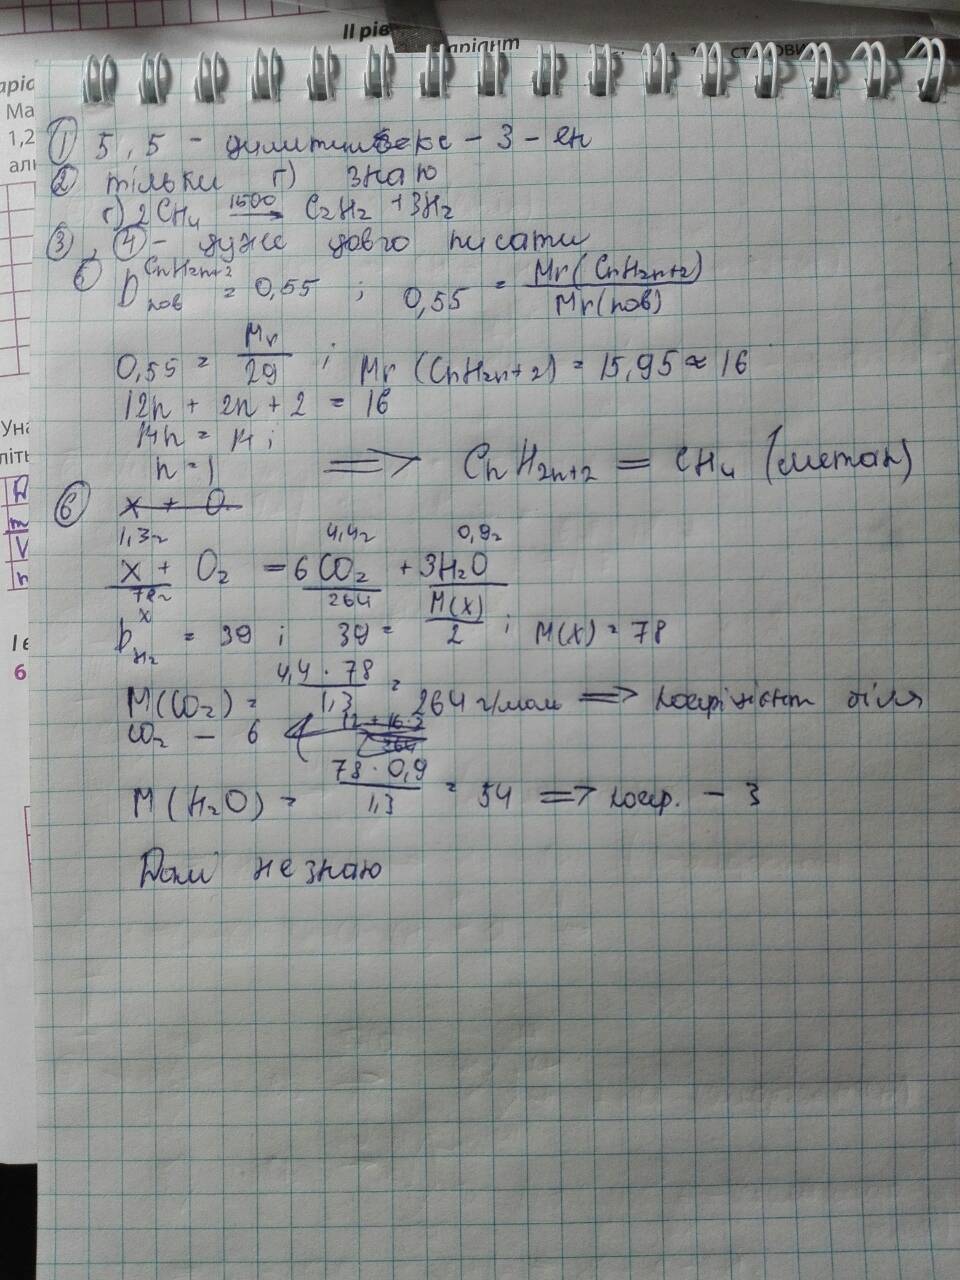 ІІ рів
аріант
станови
аріс
Ма
1,2
алк
Уна
літь
І е
6
① 5,5 - диметилгекс - 3 - ен
② тільки г) знаю
г) 2CH₄ 1500→ C₂H₂ + 3H₂
③, ④ - дуже довго писати
5) D пов CnH2n+2 = 0,55 ; 0,55 = Mr(CnH2n+2) / Mr(пов)
0,55 = Mr / 29 ; Mr (CnH2n+2) = 15,95 ≈ 16
12n + 2n + 2 = 16
14n = 14;
n = 1 ⇒ CnH2n+2 = CH₄ (метан)
⑥ x + O
1,3г 4,4г 0,9г
x + O₂ = 6CO₂ + 3H₂O
78г 264
D H₂ x = 39 ; 39 = M(x) / 2 ; M(x) = 78
M(CO₂) = 4,4 · 78 / 1,3 = 264 г/моль ⇒ коефіцієнт біля
CO₂ - 6 12 + 16·2
264
M(H₂O) = 78 · 0,9 / 1,3 = 54 ⇒ коеф. - 3
Далі не знаю